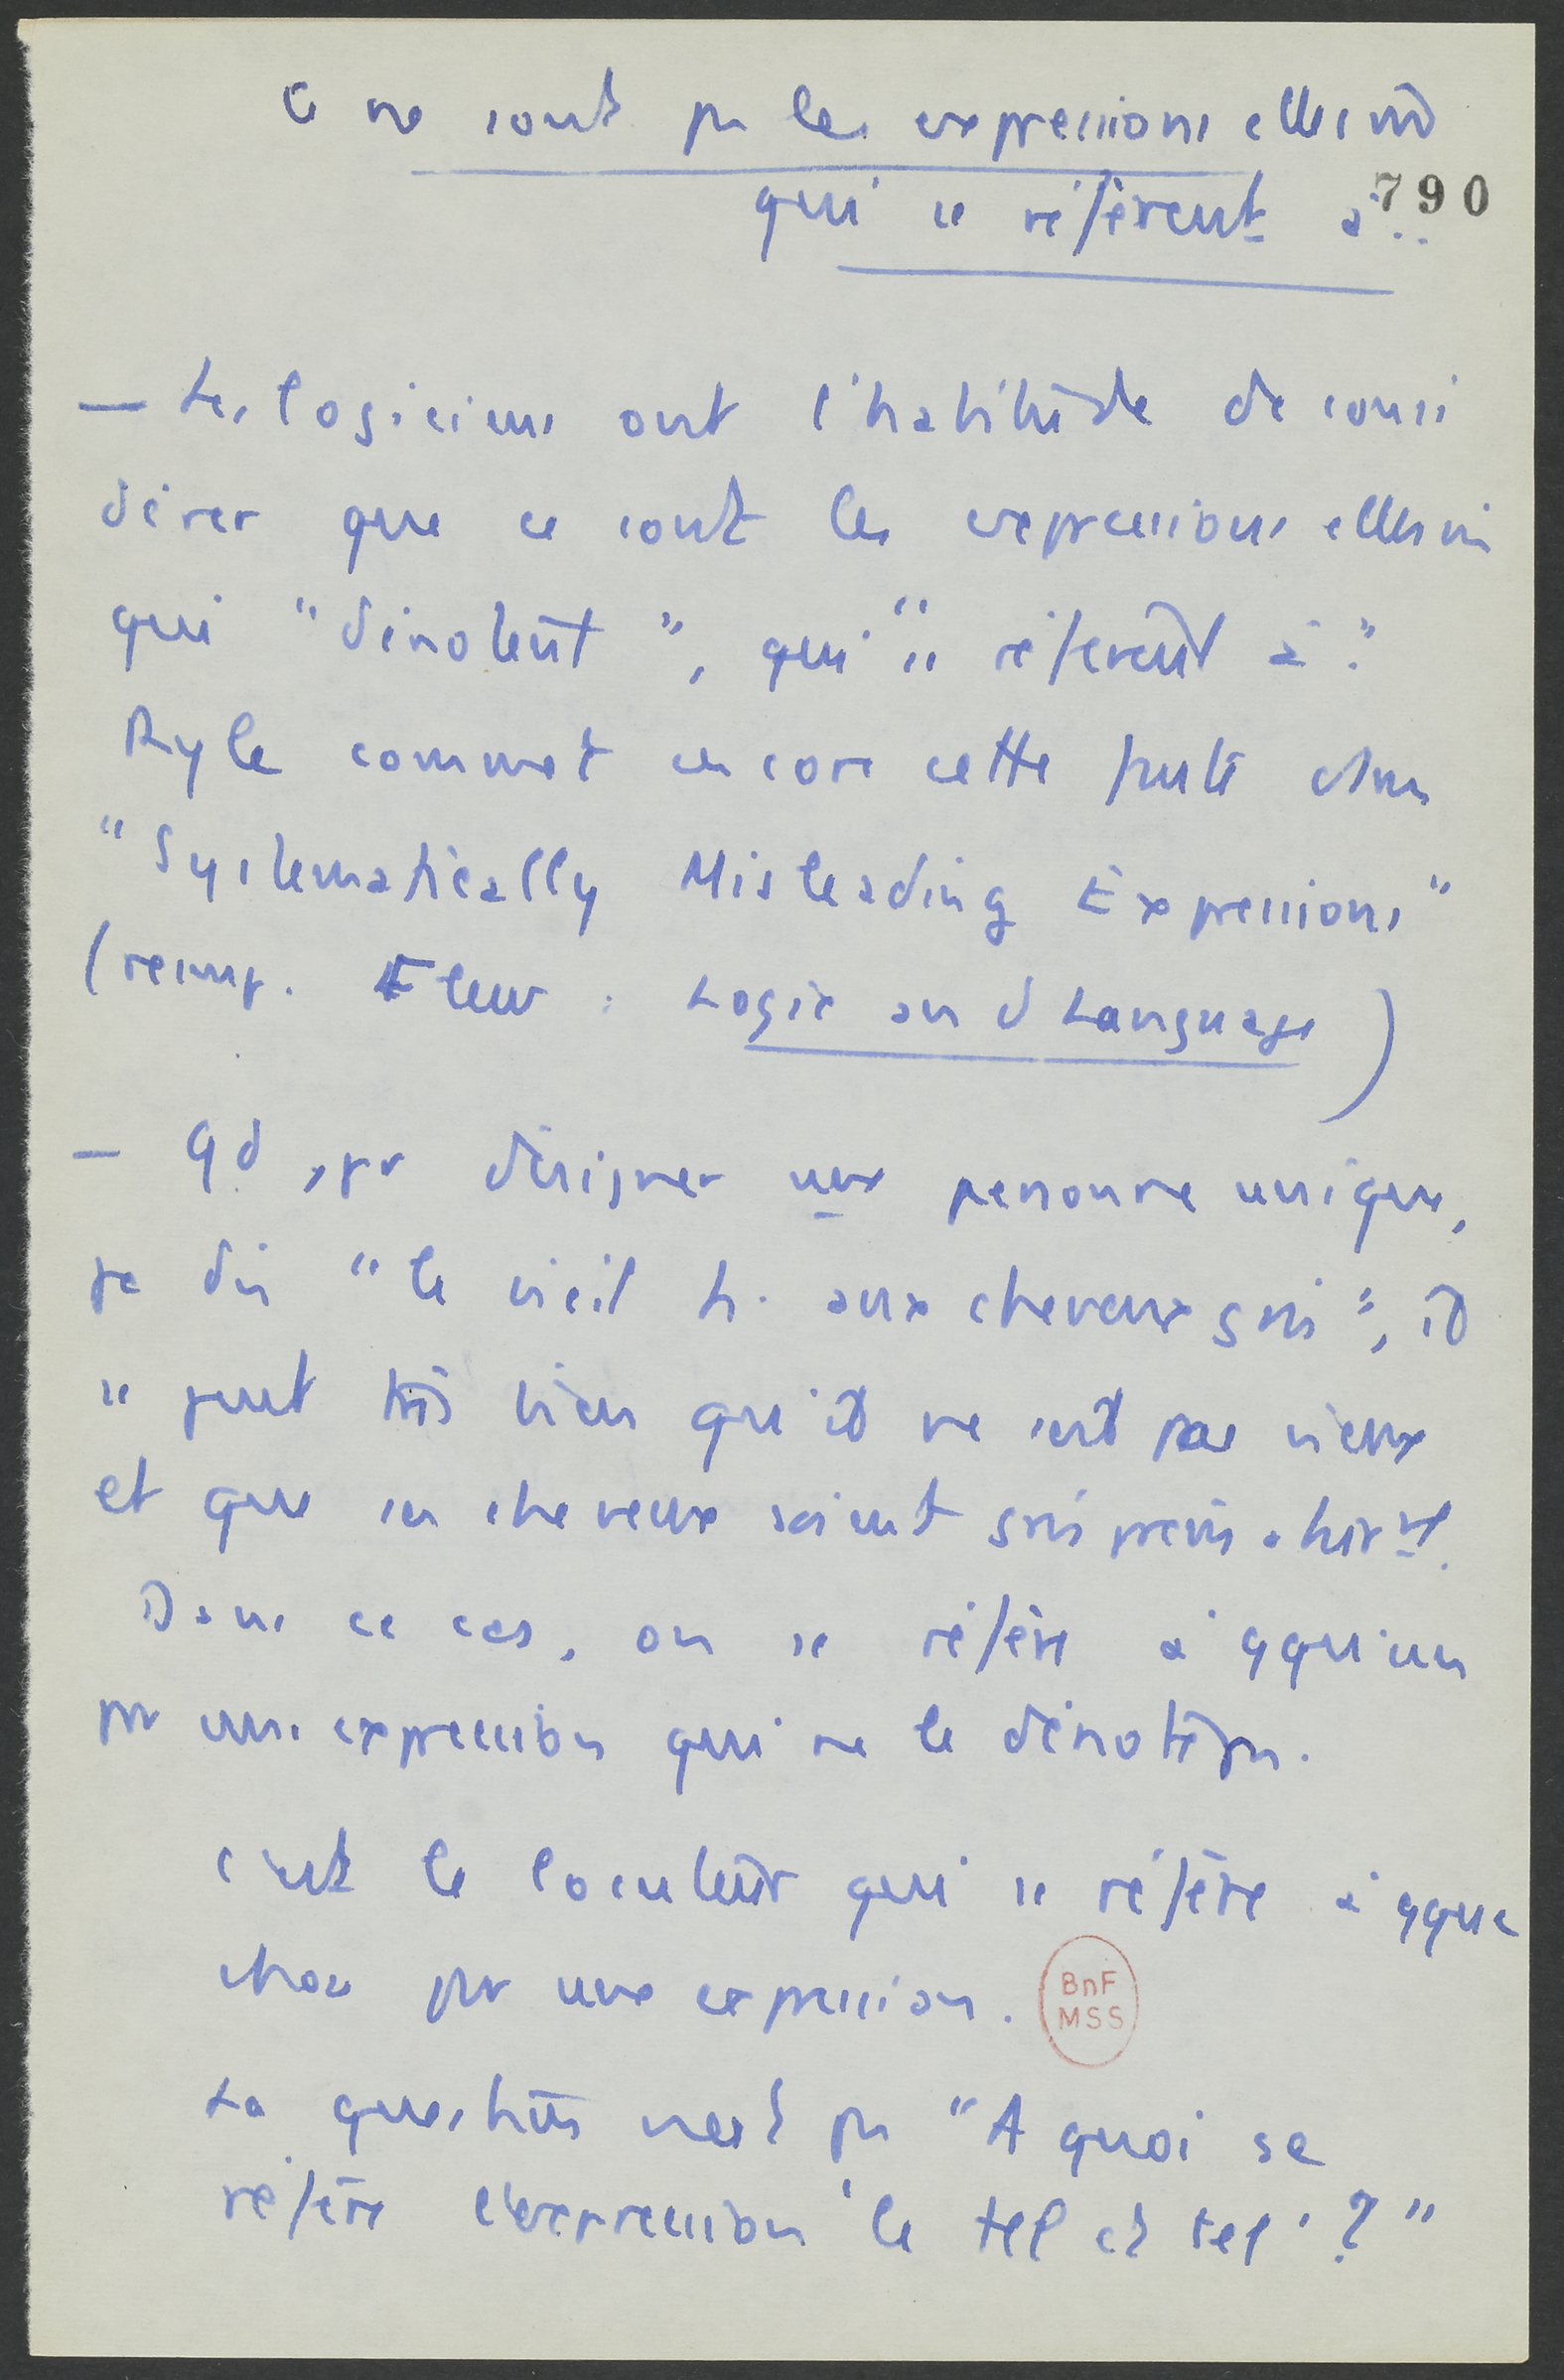 Ce ne sont pas les expressions elles m̂
qui se réfèrent à...
790
— Les logiciens ont l'habitude de consi
dérer que ce sont les expressions elles m̂
qui "dénotent", qui "se réfèrent à".
Ryle commet encore cette faute dans
"Systematically Misleading Expressions"
(reimp. Flew : Logic and Language)
— Qd, pr désigner une personne unique,
je dis "le vieil h. aux cheveux gris", il
se peut très bien qu'il ne soit pas vieux
et que ses cheveux soient gris
Dans ce cas, on se réfère à qqu'un
par une expression qui ne le dénote pas.
C'est le locuteur qui se réfère à qque
chose par une expression.
BnF
MSS
La question n'est pas "A quoi se
réfère l'expression 'le tel et tel' ?"